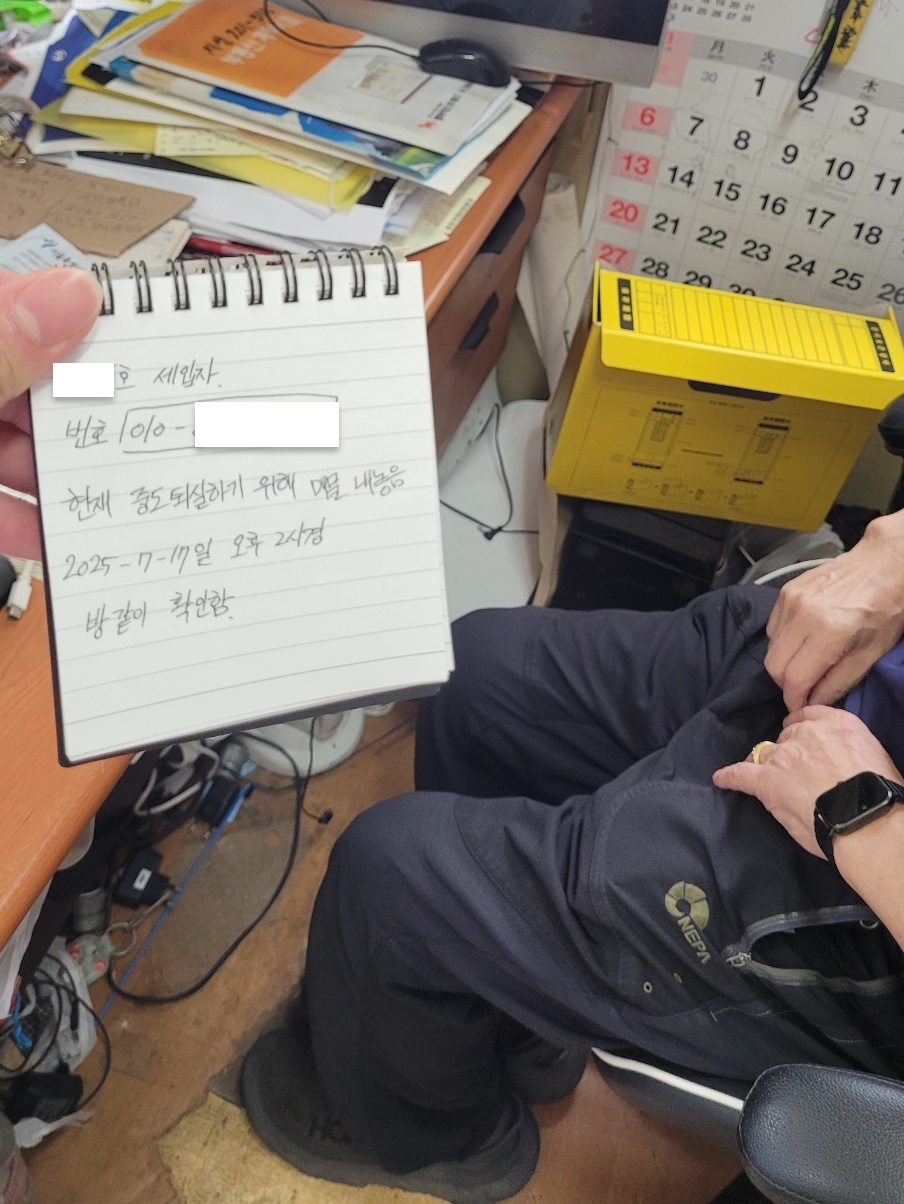 호 세입자.
번호 010-
현재 중도퇴실하기 위해 매물 내놓음
2025-7-17일 오후 2시경
방같이 확인함.
月 火 木
30 1 2 3
6 7 8 9 10 11
13 14 15 16 17 18
20 21 22 23 24 25 26
27 28 29 30 31
NEPA